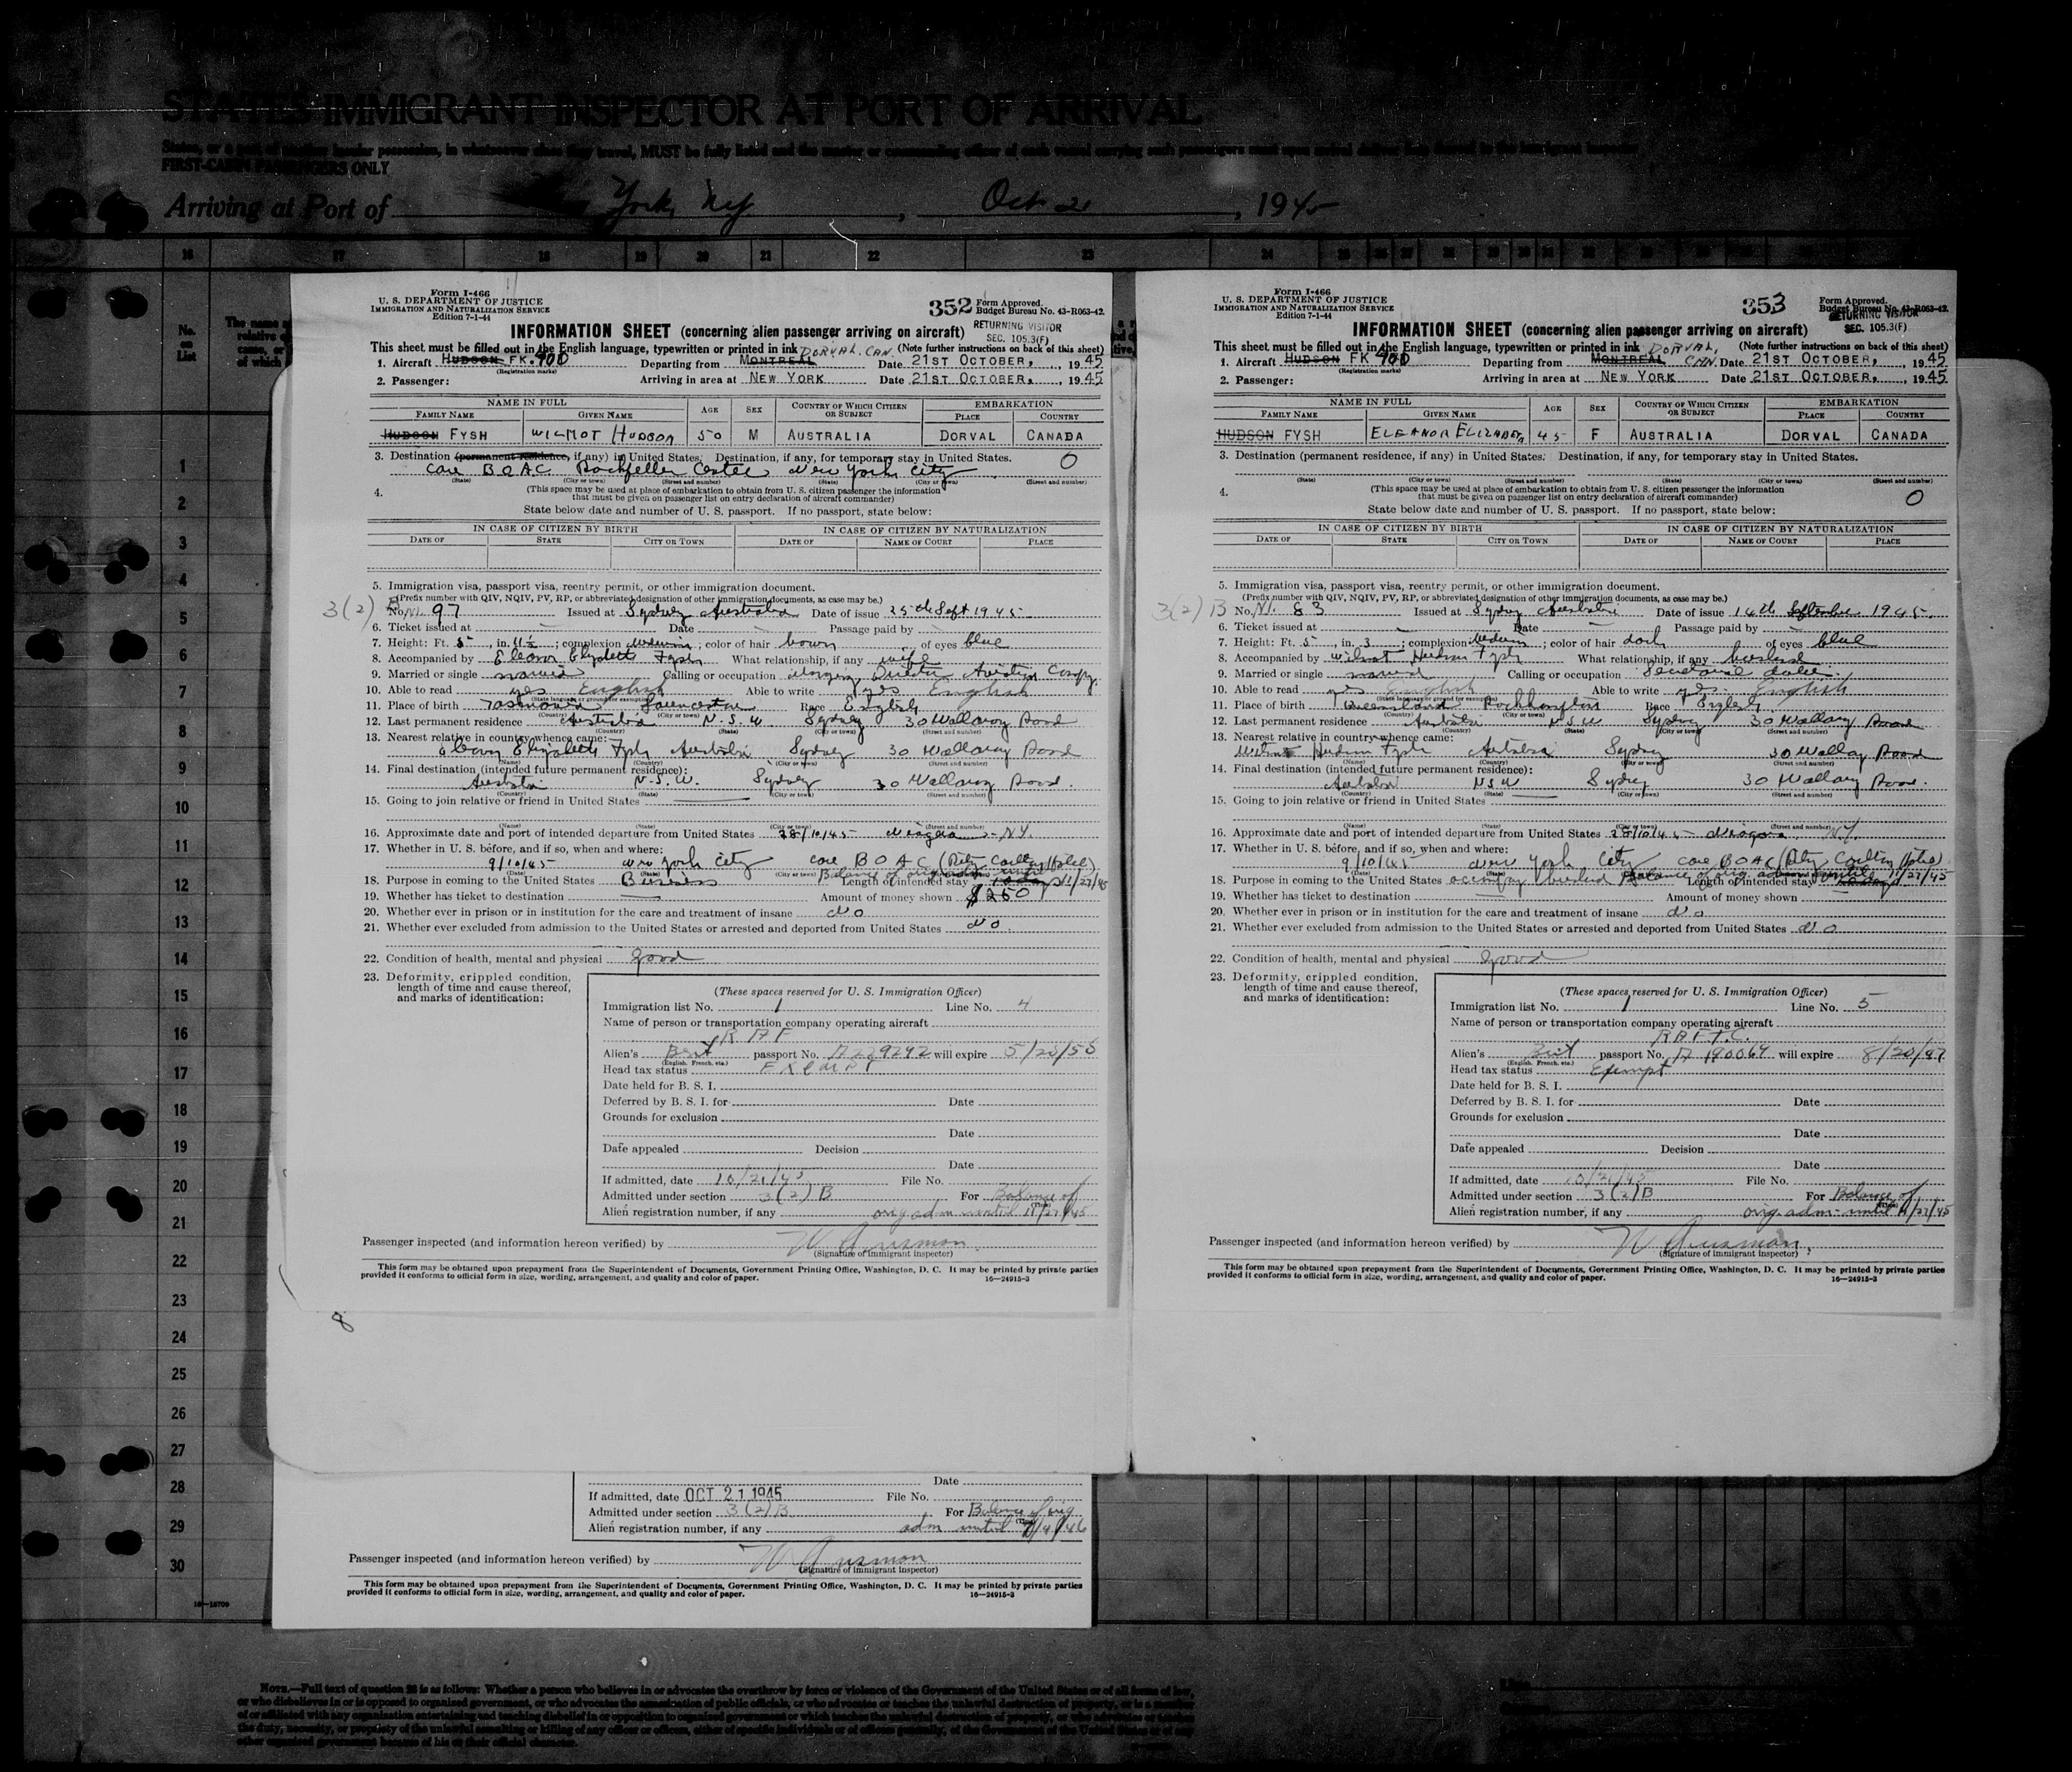 STATES IMMIGRANT INSPECTOR AT PORT OF ARRIVAL
FIRST-CABIN PASSENGERS ONLY
Arriving at Port of York, NY, Oct 21, 1945
16 17 18 19 20 21 22 23 24
No. on List
Form I-466
U. S. DEPARTMENT OF JUSTICE
IMMIGRATION AND NATURALIZATION SERVICE
Edition 7-1-44
352
Form Approved.
Budget Bureau No. 43-R063-42.
RETURNING VISITOR
SEC. 105.3(F)
INFORMATION SHEET (concerning alien passenger arriving on aircraft)
This sheet must be filled out in the English language, typewritten or printed in ink DORVAL. CAN. (Note further instructions on back of this sheet)
1. Aircraft HUDSON FK. 900 Departing from MONTREAL Date 21ST OCTOBER, 1945
(Registration marks)
2. Passenger: Arriving in area at NEW YORK Date 21ST OCTOBER, 1945
NAME IN FULL AGE SEX COUNTRY OF WHICH CITIZEN OR SUBJECT EMBARKATION
FAMILY NAME GIVEN NAME PLACE COUNTRY
HUDSON FYSH WILMOT HUDSON 50 M AUSTRALIA DORVAL CANADA
3. Destination (permanent residence, if any) in United States. Destination, if any, for temporary stay in United States.
care BOAC Rockfeller Center New York City O
(State) (City or town) (Street and number) (State) (City or town) (Street and number)
4. (This space may be used at place of embarkation to obtain from U. S. citizen passenger the information
that must be given on passenger list on entry declaration of aircraft commander)
State below date and number of U. S. passport. If no passport, state below:
IN CASE OF CITIZEN BY BIRTH IN CASE OF CITIZEN BY NATURALIZATION
DATE OF STATE CITY OR TOWN DATE OF NAME OF COURT PLACE
5. Immigration visa, passport visa, reentry permit, or other immigration document.
(Prefix number with QIV, NQIV, PV, RP, or abbreviated designation of other immigration documents, as case may be.)
3(2) B No. NI. 97 Issued at Sydney Australia Date of issue 25th Sept 1945
6. Ticket issued at Date Passage paid by
7. Height: Ft. 5, in. 11½; complexion medium; color of hair brown of eyes blue
8. Accompanied by Eleanor Elizabeth Fysh What relationship, if any wife
9. Married or single married Calling or occupation Managing Director Aviation Compy.
10. Able to read yes English Able to write yes English
(State language or ground for exemption)
11. Place of birth Tasmania Launceston Race English
(Country) (City or town)
12. Last permanent residence Australia N.S.W Sydney 30 Wallaroy Road
(Country) (State) (City or town) (Street and number)
13. Nearest relative in country whence came:
Eleanor Elizabeth Fysh Australia Sydney 30 Wallaroy Road
(Name) (Country) (City or town) (Street and number)
14. Final destination (intended future permanent residence):
Australia N.S.W. Sydney 30 Wallaroy Road.
(Country) (State) (City or town) (Street and number)
15. Going to join relative or friend in United States
(Name) (State) (City or town) (Street and number)
16. Approximate date and port of intended departure from United States 28/10/45 Niagara - N.Y.
17. Whether in U. S. before, and if so, when and where:
9/10/45 New York City care BOAC (Ritz Carlton Hotel)
(Date) (State) (City or town)
18. Purpose in coming to the United States Business Length of intended stay Balance of orig adm until 11/27/45
19. Whether has ticket to destination Amount of money shown $260
20. Whether ever in prison or in institution for the care and treatment of insane No
21. Whether ever excluded from admission to the United States or arrested and deported from United States No.
22. Condition of health, mental and physical good
23. Deformity, crippled condition,
length of time and cause thereof,
and marks of identification:
(These spaces reserved for U. S. Immigration Officer)
Immigration list No. 1 Line No. 4
Name of person or transportation company operating aircraft
RAF
Alien's Brit passport No. A229292 will expire 5/25/56
(English, French, etc.)
Head tax status Exempt
Date held for B. S. I.
Deferred by B. S. I. for Date
Grounds for exclusion
Date
Date appealed Decision
Date
If admitted, date 10/21/45 File No.
Admitted under section 3(2)B For Balance of
Alien registration number, if any orig adm until 11/27/45
Passenger inspected (and information hereon verified) by W Ausmon
(Signature of immigrant inspector)
This form may be obtained upon prepayment from the Superintendent of Documents, Government Printing Office, Washington, D. C. It may be printed by private parties
provided it conforms to official form in size, wording, arrangement, and quality and color of paper. 16—24915-3
8
Form I-466
U. S. DEPARTMENT OF JUSTICE
IMMIGRATION AND NATURALIZATION SERVICE
Edition 7-1-44
353
Form Approved.
Budget Bureau No. 43-R063-42.
RETURNING VISITOR
SEC. 105.3(F)
INFORMATION SHEET (concerning alien passenger arriving on aircraft)
This sheet must be filled out in the English language, typewritten or printed in ink DORVAL, CAN. (Note further instructions on back of this sheet)
1. Aircraft HUDSON FK 900 Departing from MONTREAL Date 21ST OCTOBER, 1945
(Registration marks)
2. Passenger: Arriving in area at NEW YORK Date 21ST OCTOBER, 1945
NAME IN FULL AGE SEX COUNTRY OF WHICH CITIZEN OR SUBJECT EMBARKATION
FAMILY NAME GIVEN NAME PLACE COUNTRY
HUDSON FYSH ELEANOR ELIZABETH 45 F AUSTRALIA DORVAL CANADA
3. Destination (permanent residence, if any) in United States. Destination, if any, for temporary stay in United States.
(State) (City or town) (Street and number) (State) (City or town) (Street and number)
4. (This space may be used at place of embarkation to obtain from U. S. citizen passenger the information
that must be given on passenger list on entry declaration of aircraft commander) O
State below date and number of U. S. passport. If no passport, state below:
IN CASE OF CITIZEN BY BIRTH IN CASE OF CITIZEN BY NATURALIZATION
DATE OF STATE CITY OR TOWN DATE OF NAME OF COURT PLACE
5. Immigration visa, passport visa, reentry permit, or other immigration document.
(Prefix number with QIV, NQIV, PV, RP, or abbreviated designation of other immigration documents, as case may be.)
3(2) B No. NI. 83 Issued at Sydney Australia Date of issue 14th September 1945.
6. Ticket issued at Date Passage paid by
7. Height: Ft. 5, in. 3; complexion medium; color of hair dark of eyes blue
8. Accompanied by Wilmot Hudson Fysh What relationship, if any husband
9. Married or single married Calling or occupation
10. Able to read yes English Able to write yes. English
(State language or ground for exemption)
11. Place of birth Queensland Rockhampton Race English.
(Country) (City or town)
12. Last permanent residence Australia N.S.W Sydney 30 Wallaroy Road
(Country) (State) (City or town) (Street and number)
13. Nearest relative in country whence came:
Wilmot Hudson Fysh Australia Sydney 30 Wallaroy Road
(Name) (Country) (City or town) (Street and number)
14. Final destination (intended future permanent residence):
Australia N.S.W Sydney 30 Wallaroy Road.
(Country) (State) (City or town) (Street and number)
15. Going to join relative or friend in United States
(Name) (State) (City or town) (Street and number)
16. Approximate date and port of intended departure from United States 28/10/45 Niagara NY.
17. Whether in U. S. before, and if so, when and where:
9/10/45 New York City care BOAC (Ritz Carlton Hotel)
18. Purpose in coming to the United States accompany husband Length of intended stay Balance of orig adm until 11/27/45
19. Whether has ticket to destination Amount of money shown
20. Whether ever in prison or in institution for the care and treatment of insane No
21. Whether ever excluded from admission to the United States or arrested and deported from United States No
22. Condition of health, mental and physical good
23. Deformity, crippled condition,
length of time and cause thereof,
and marks of identification:
(These spaces reserved for U. S. Immigration Officer)
Immigration list No. 1 Line No. 5
Name of person or transportation company operating aircraft
RAFTC.
Alien's Brit passport No. A 190064 will expire 8/20/47
(English, French, etc.)
Head tax status Exempt
Date held for B. S. I.
Deferred by B. S. I. for Date
Grounds for exclusion
Date
Date appealed Decision
Date
If admitted, date 10/21/45 File No.
Admitted under section 3(2)B For Balance of
Alien registration number, if any orig adm- until 11/27/45
Passenger inspected (and information hereon verified) by W Ausmon
(Signature of immigrant inspector)
This form may be obtained upon prepayment from the Superintendent of Documents, Government Printing Office, Washington, D. C. It may be printed by private parties
provided it conforms to official form in size, wording, arrangement, and quality and color of paper. 16—24915-3
Date
If admitted, date OCT 21 1945 File No.
Admitted under section 3(2)B For Balance of orig
Alien registration number, if any adm until
Passenger inspected (and information hereon verified) by W Ausmon
(Signature of immigrant inspector)
This form may be obtained upon prepayment from the Superintendent of Documents, Government Printing Office, Washington, D. C. It may be printed by private parties
provided it conforms to official form in size, wording, arrangement, and quality and color of paper. 16—24915-3
1
2
3
4
5
6
7
8
9
10
11
12
13
14
15
16
17
18
19
20
21
22
23
24
25
26
27
28
29
30
NOTE.—Full text of question 28 is as follows: Whether a person who believes in or advocates the overthrow by force or violence of the Government of the United States or of all forms of law,